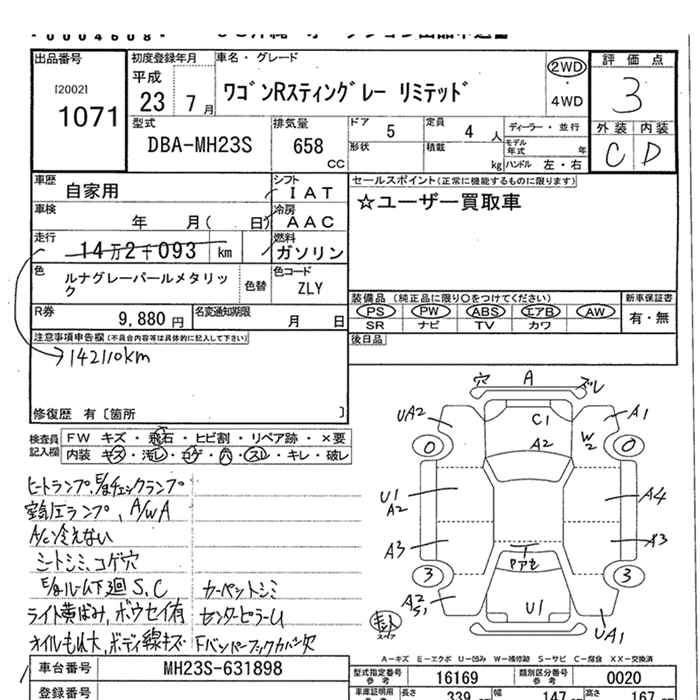 出品番号
[2002]
1071
初度登録年月
平成
23 7月
車名・グレード
ワゴンRスティングレー リミテッド
2WD
・
4WD
評価点
3
外装 内装
C D
型式
DBA-MH23S
排気量
658
CC
ドア 5
定員 4 人
ディーラー・並行
形状
積載 kg
モデル年式 年
ハンドル 左・右
車歴 自家用
シフト IAT
車検 年 月( 日)
冷房 AAC
走行 14万2千093 km
燃料 ガソリン
色 ルナグレーパールメタリック
色替
色コード ZLY
R券 9,880 円
名変通知期限 月 日
セールスポイント(正常に機能するものに限ります)
☆ユーザー買取車
装備品(純正品に限り○をつけてください)
新車保証書
PS PW ABS エアB AW
有・無
SR ナビ TV カワ
後日品
注意事項申告欄(不具合内容等は具体的に記入して下さい)
142110km
修復歴 有 [箇所 ]
検査員記入欄
FW キズ・飛石・ヒビ割・リペア跡・×要
内装 キズ・汚レ・コゲ・穴・スレ・キレ・破レ
ヒートランプ、E/gチェックランプ
空気圧ランプ、A/WA
A/C冷えない
シートシミ、コゲ穴
E/gルーム下廻S、C カーペットシミ
ライト黄ばみ、ボウセイ有 センターピラーU
オイルもれ大、ボディ線キズ FバンパーフックカバーX
穴 A ズレ
UA2 C1 A1
A2 W2
0 0
U1 A2 A4
A3 A3
3 Pアセ 3
A2 S1 U1 UA1
A-キズ E-エクボ U-凹み W-補修跡 S-サビ C-腐食 XX-交換済
車台番号 MH23S-631898
型式指定番号 参考 16169
類別区分番号 参考 0020
登録番号
車庫証明用
長さ 339
幅 147
高さ 167